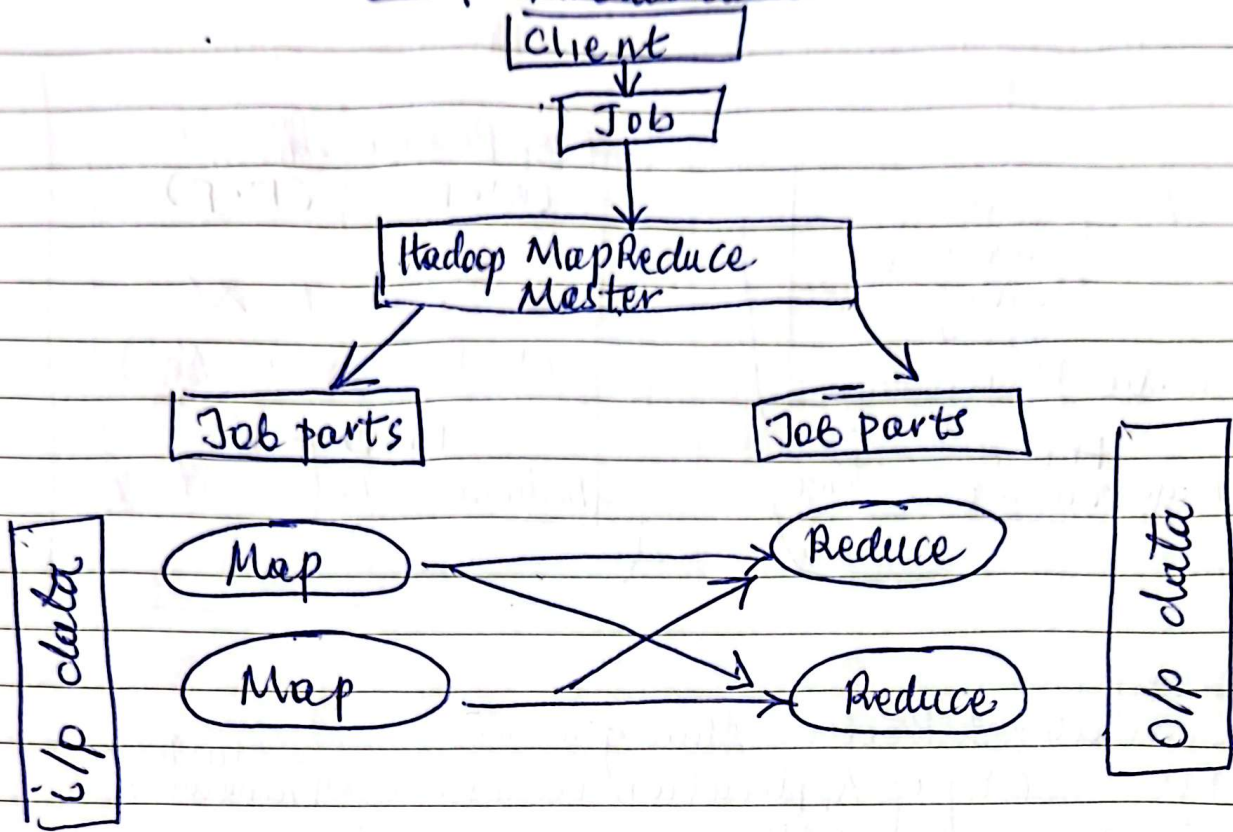 Client
Job
Hadoop MapReduce
Master
Job parts
Job parts
i/p data
Map
Reduce
Map
Reduce
O/p data